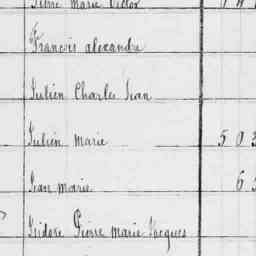 Pierre Marie Victor
François alexandre
Julien Charles Jean
Julien Marie 5 0 3
Jean marie 6 5
Isidore Pierre Marie Jacques